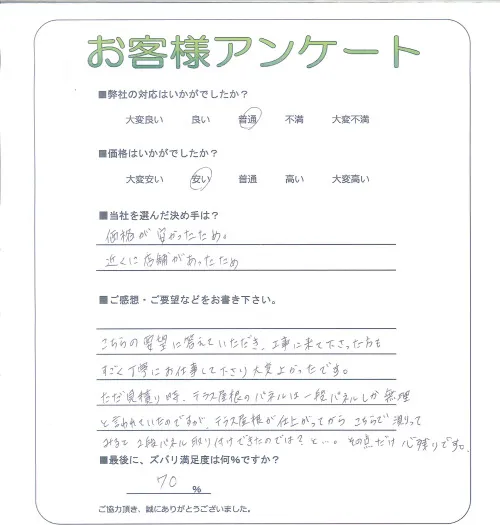 お客様アンケート
■弊社の対応はいかがでしたか？
大変良い 良い 普通 不満 大変不満
■価格はいかがでしたか？
大変安い 安い 普通 高い 大変高い
■当社を選んだ決め手は？
価格が良かったため。
近くに店舗があったため
■ご感想・ご要望などをお書き下さい。
こちらの要望に答えていただき、工事に来て下さった方も
すごく丁寧にお仕事して下さり大変よかったです。
ただ見積り時、テラス屋根のパネルは一段パネルしか無理
と言われていたのですが、テラス屋根が仕上がってから こちらで測って
みると 2段パネル取り付けできたのでは？と…。その点だけ心残りです。
■最後に、ズバリ満足度は何％ですか？
70 %
ご協力頂き、誠にありがとうございました。